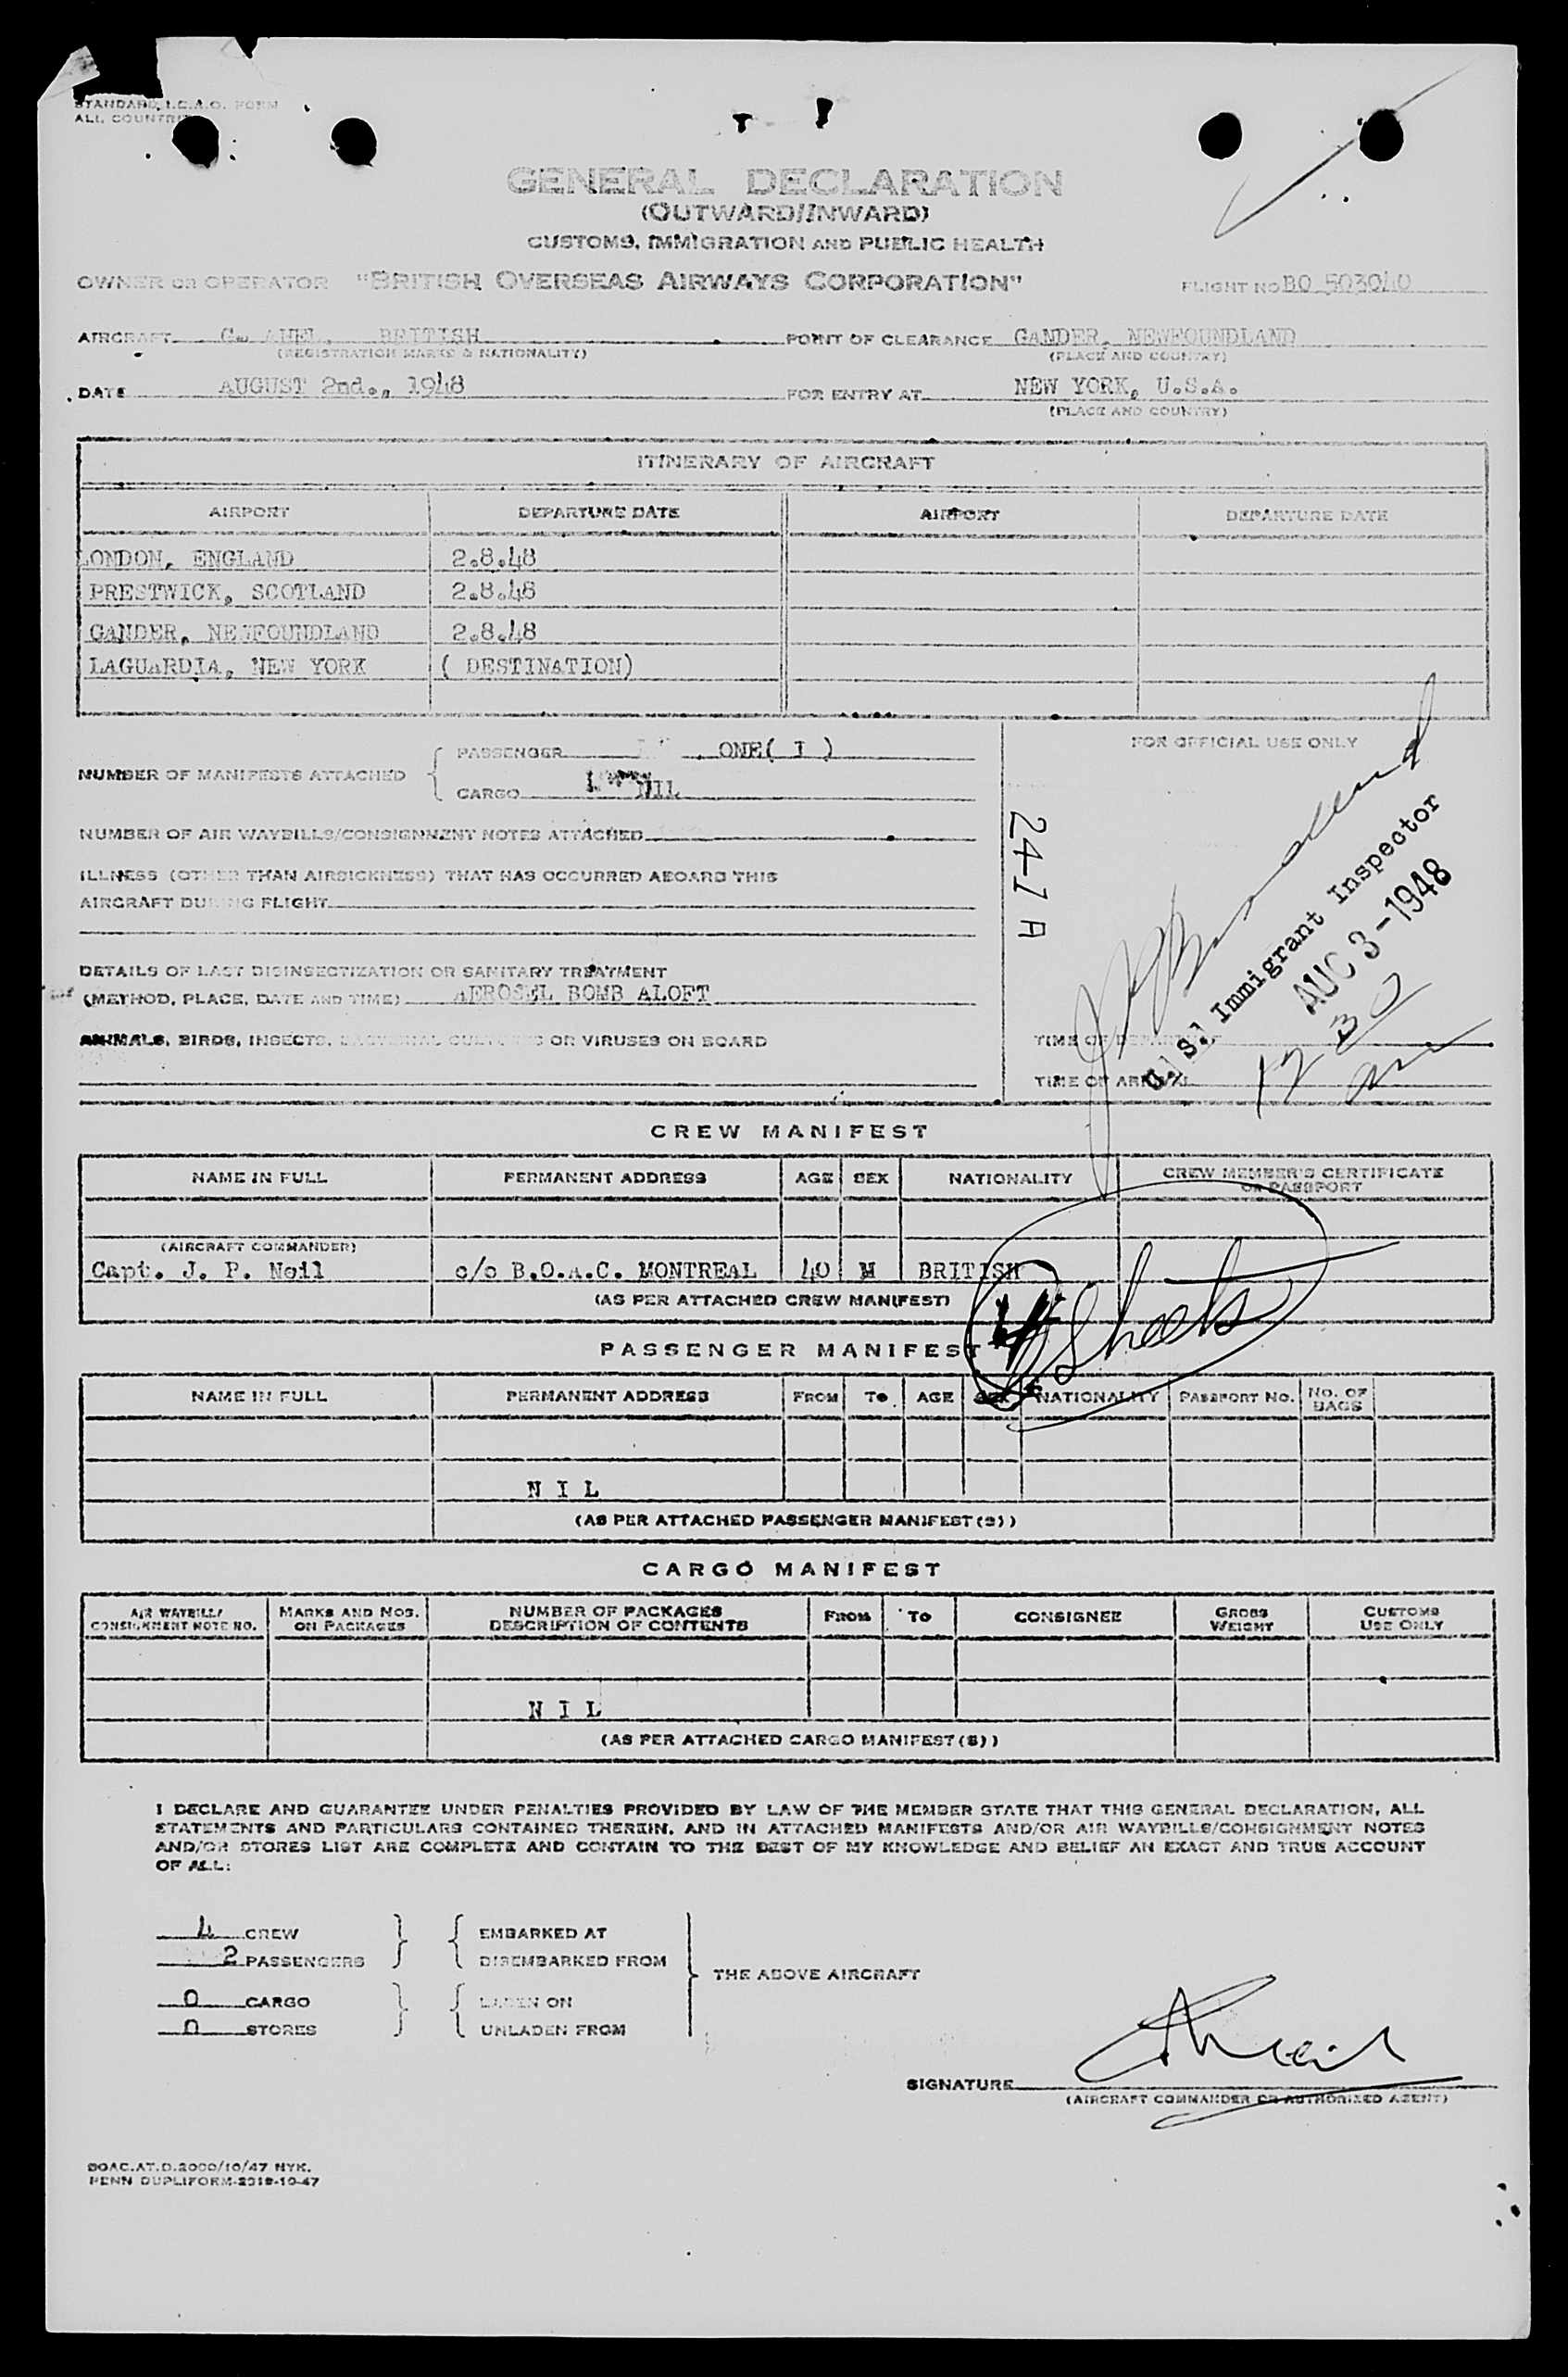 STANDARD, I.C.A.O. FORM
ALL COUNTRIES
GENERAL DECLARATION
(OUTWARD/INWARD)
CUSTOMS, IMMIGRATION AND PUBLIC HEALTH
OWNER OR OPERATOR "BRITISH OVERSEAS AIRWAYS CORPORATION" FLIGHT NO BO 503040
AIRCRAFT G. AHEL. BRITISH POINT OF CLEARANCE GANDER, NEWFOUNDLAND
(REGISTRATION MARKS & NATIONALITY) (PLACE AND COUNTRY)
DATE AUGUST 2nd., 1948 FOR ENTRY AT NEW YORK, U.S.A.
(PLACE AND COUNTRY)
ITINERARY OF AIRCRAFT
AIRPORT DEPARTURE DATE AIRPORT DEPARTURE DATE
LONDON, ENGLAND 2.8.48
PRESTWICK, SCOTLAND 2.8.48
GANDER, NEWFOUNDLAND 2.8.48
LAGUARDIA, NEW YORK ( DESTINATION)
NUMBER OF MANIFESTS ATTACHED
PASSENGER ONE( I )
CARGO NIL
FOR OFFICIAL USE ONLY
NUMBER OF AIR WAYBILLS/CONSIGNNZNT NOTES ATTACHED
ILLNESS (OTHER THAN AIRSICKNESS) THAT HAS OCCURRED ABOARD THIS
AIRCRAFT DURING FLIGHT
24-1 A
U. S. Immigrant Inspector
AUG 3-1948
12 30
am
DETAILS OF LAST DISINSECTIZATION OR SANITARY TREATMENT
(METHOD, PLACE, DATE AND TIME) AEROSEL BOMB ALOFT
ANIMALS, BIRDS, INSECTS, BACTERIAL CULTURES OR VIRUSES ON BOARD
TIME OF DEPARTURE
TIME OF ARRIVAL
CREW MANIFEST
NAME IN FULL PERMANENT ADDRESS AGE SEX NATIONALITY CREW MEMBER'S CERTIFICATE
OR PASSPORT
(AIRCRAFT COMMANDER)
Capt. J. P. Neil c/o B.O.A.C. MONTREAL 40 M BRITISH
(AS PER ATTACHED CREW MANIFEST)
4 Sheets
PASSENGER MANIFEST
NAME IN FULL PERMANENT ADDRESS FROM TO AGE SEX NATIONALITY PASSPORT NO. NO. OF
BAGS
N I L
(AS PER ATTACHED PASSENGER MANIFEST(S))
CARGO MANIFEST
AIR WAYBILL/
CONSIGNMENT NOTE NO. MARKS AND NOS.
ON PACKAGES NUMBER OF PACKAGES
DESCRIPTION OF CONTENTS FROM TO CONSIGNEE GROSS
WEIGHT CUSTOMS
USE ONLY
N I L
(AS PER ATTACHED CARGO MANIFEST(S))
I DECLARE AND GUARANTEE UNDER PENALTIES PROVIDED BY LAW OF THE MEMBER STATE THAT THIS GENERAL DECLARATION, ALL
STATEMENTS AND PARTICULARS CONTAINED THEREIN, AND IN ATTACHED MANIFESTS AND/OR AIR WAYBILLS/CONSIGNMENT NOTES
AND/OR STORES LIST ARE COMPLETE AND CONTAIN TO THE BEST OF MY KNOWLEDGE AND BELIEF AN EXACT AND TRUE ACCOUNT
OF ALL:
4 CREW EMBARKED AT
2 PASSENGERS DISEMBARKED FROM
THE ABOVE AIRCRAFT
0 CARGO LADEN ON
0 STORES UNLADEN FROM
SIGNATURE
(AIRCRAFT COMMANDER OR AUTHORIZED AGENT)
BOAC.AT.D.2000/10/47 NYK.
PENN DUPLIFORM-2318-10-47